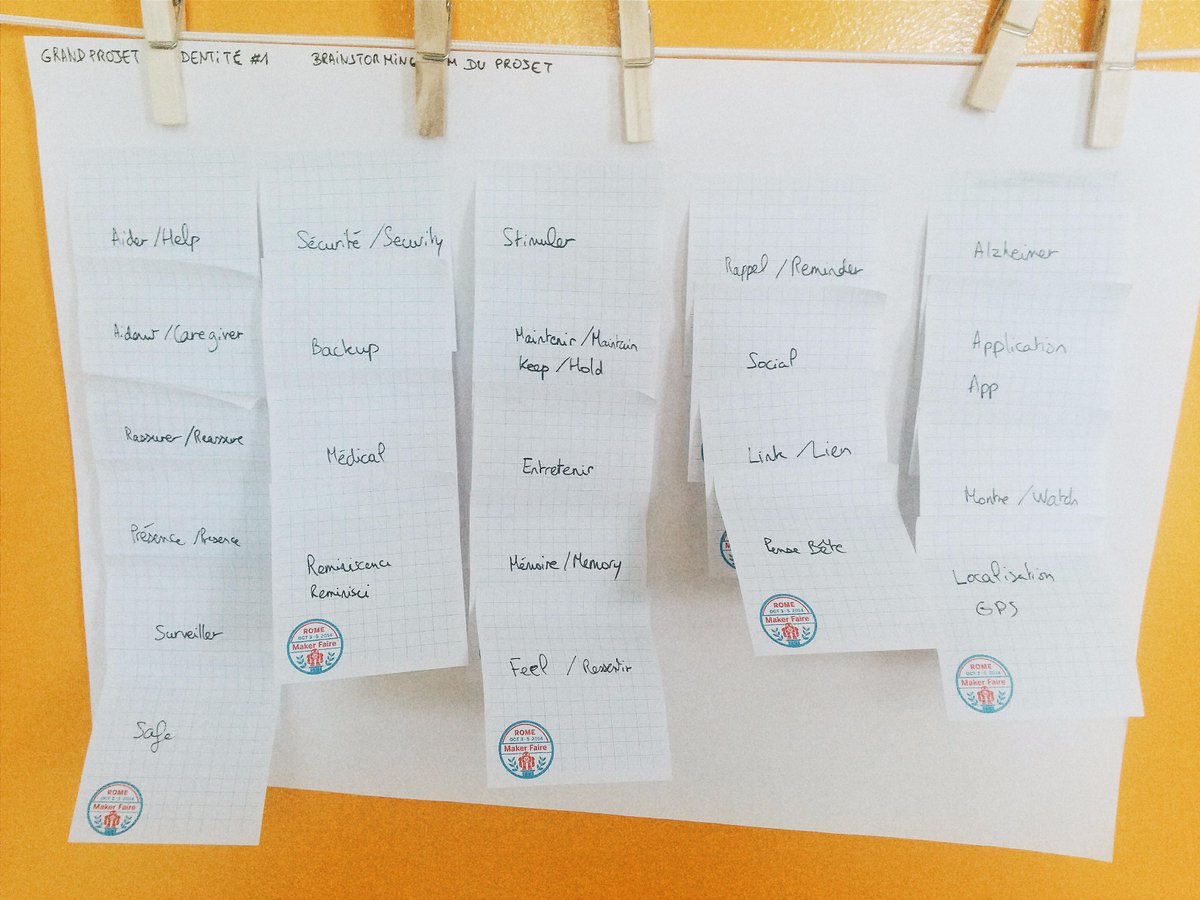 GRAND PROJET DENTITÉ #1 BRAINSTORMING M DU PROJET
Aider /Help
Aidant /Caregiver
Rassurer /Reassure
Présence /Presence
Surveiller
Safe
ROME
OCT 3-5 2014
Maker Faire
Sécurité /Security
Backup
Médical
Reminiscence
Reminisci
ROME
OCT 3-5 2014
Maker Faire
Stimuler
Maintenir /Maintain
Keep /Hold
Entretenir
Mémoire /Memory
Feel /Ressentir
ROME
OCT 3-5 2014
Maker Faire
Rappel /Reminder
Social
Link /Lien
Pense Bête
ROME
OCT 3-5 2014
Maker Faire
Alzheimer
Application
App
Montre /Watch
Localisation
GPS
ROME
OCT 3-5 2014
Maker Faire